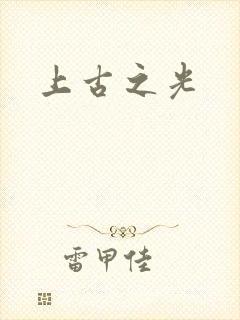 上古之光
雷甲佳